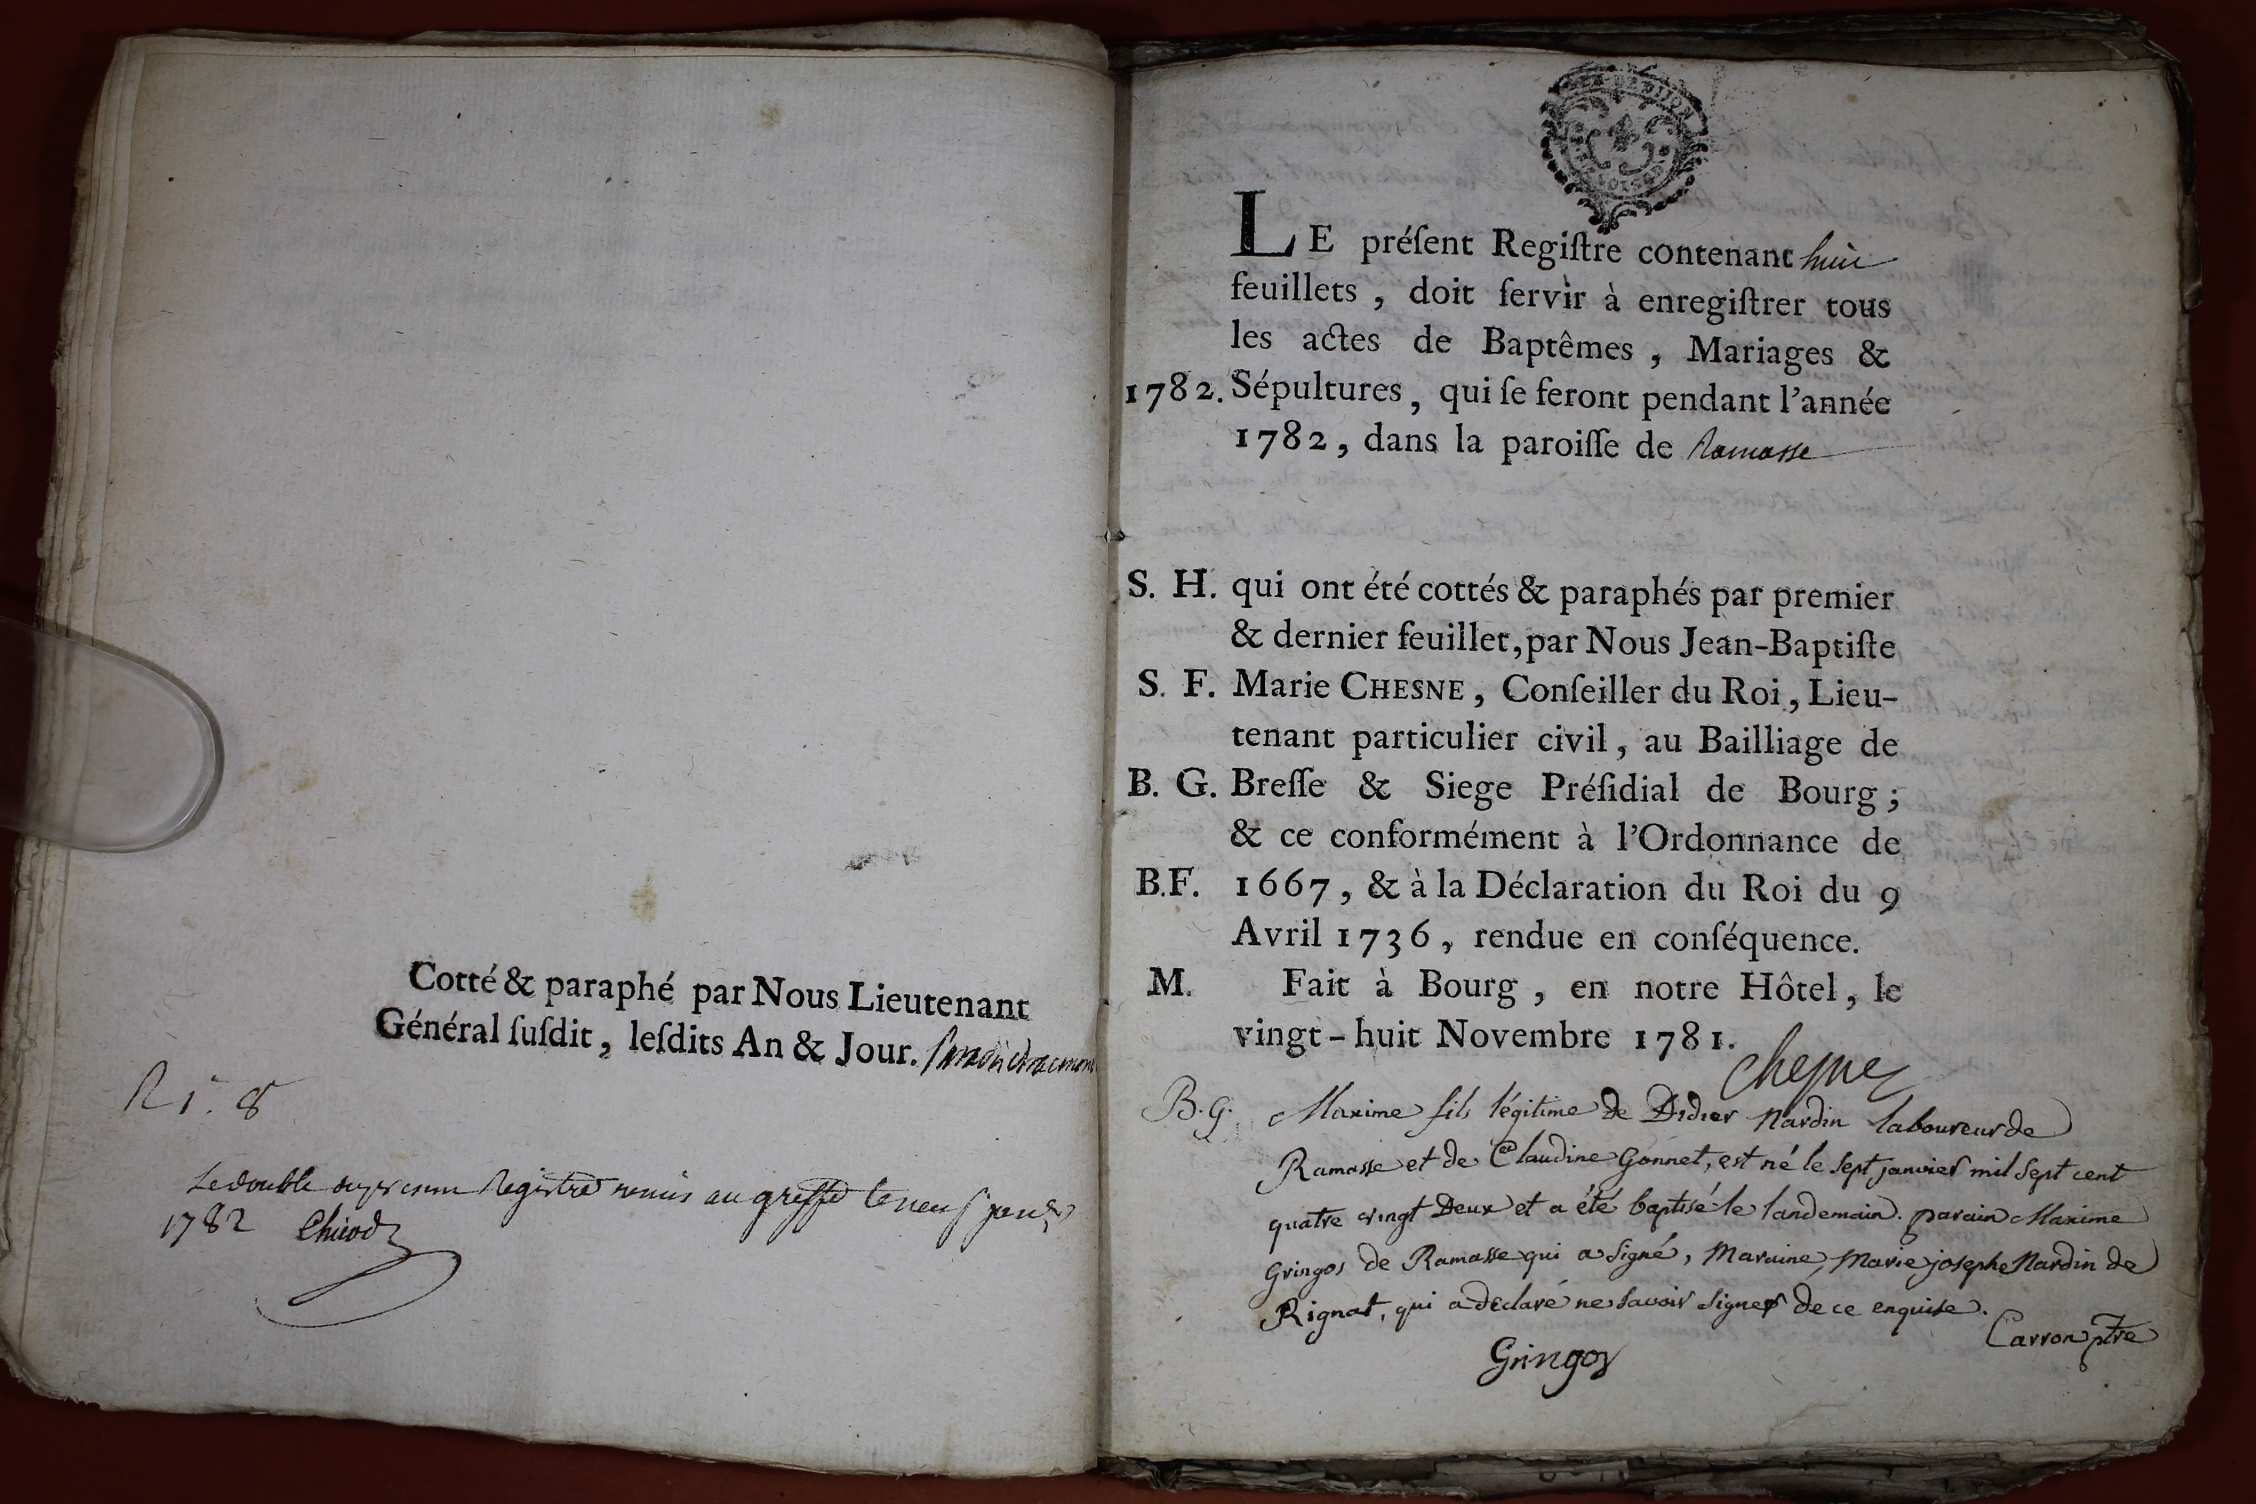 Cotté & paraphé par Nous Lieutenant
Général ſuſdit, leſdits An & Jour.
R 1. 8
Le double du present Registre remis au greffe le neuf janv.er
1782 Chicod
LE préſent Regiſtre contenant huit
feuillets, doit ſervir à enregiſtrer tous
les actes de Baptêmes, Mariages &
1782. Sépultures, qui ſe feront pendant l'année
1782, dans la paroiſſe de Ramasse
S. H. qui ont été cottés & paraphés par premier
& dernier feuillet, par Nous Jean-Baptiſte
S. F. Marie CHESNE, Conſeiller du Roi, Lieu-
tenant particulier civil, au Bailliage de
B. G. Breſſe & Siege Préſidial de Bourg;
& ce conformément à l'Ordonnance de
B.F. 1667, & à la Déclaration du Roi du 9
Avril 1736, rendue en conſéquence.
M. Fait à Bourg, en notre Hôtel, le
vingt-huit Novembre 1781.
Chesne
B. G. Maxime fils légitime de Didier Nardin laboureur de
Ramasse et de Claudine Gonnet, est né le sept janvier mil sept cent
quatre vingt Deux et a été baptisé le landemain. parain Maxime
Gringos de Ramasse qui a signé, Maraine, Marie josephe Nardin de
Rignat, qui a déclaré ne savoir signer de ce enquise.
Carron ptre
Gringoz